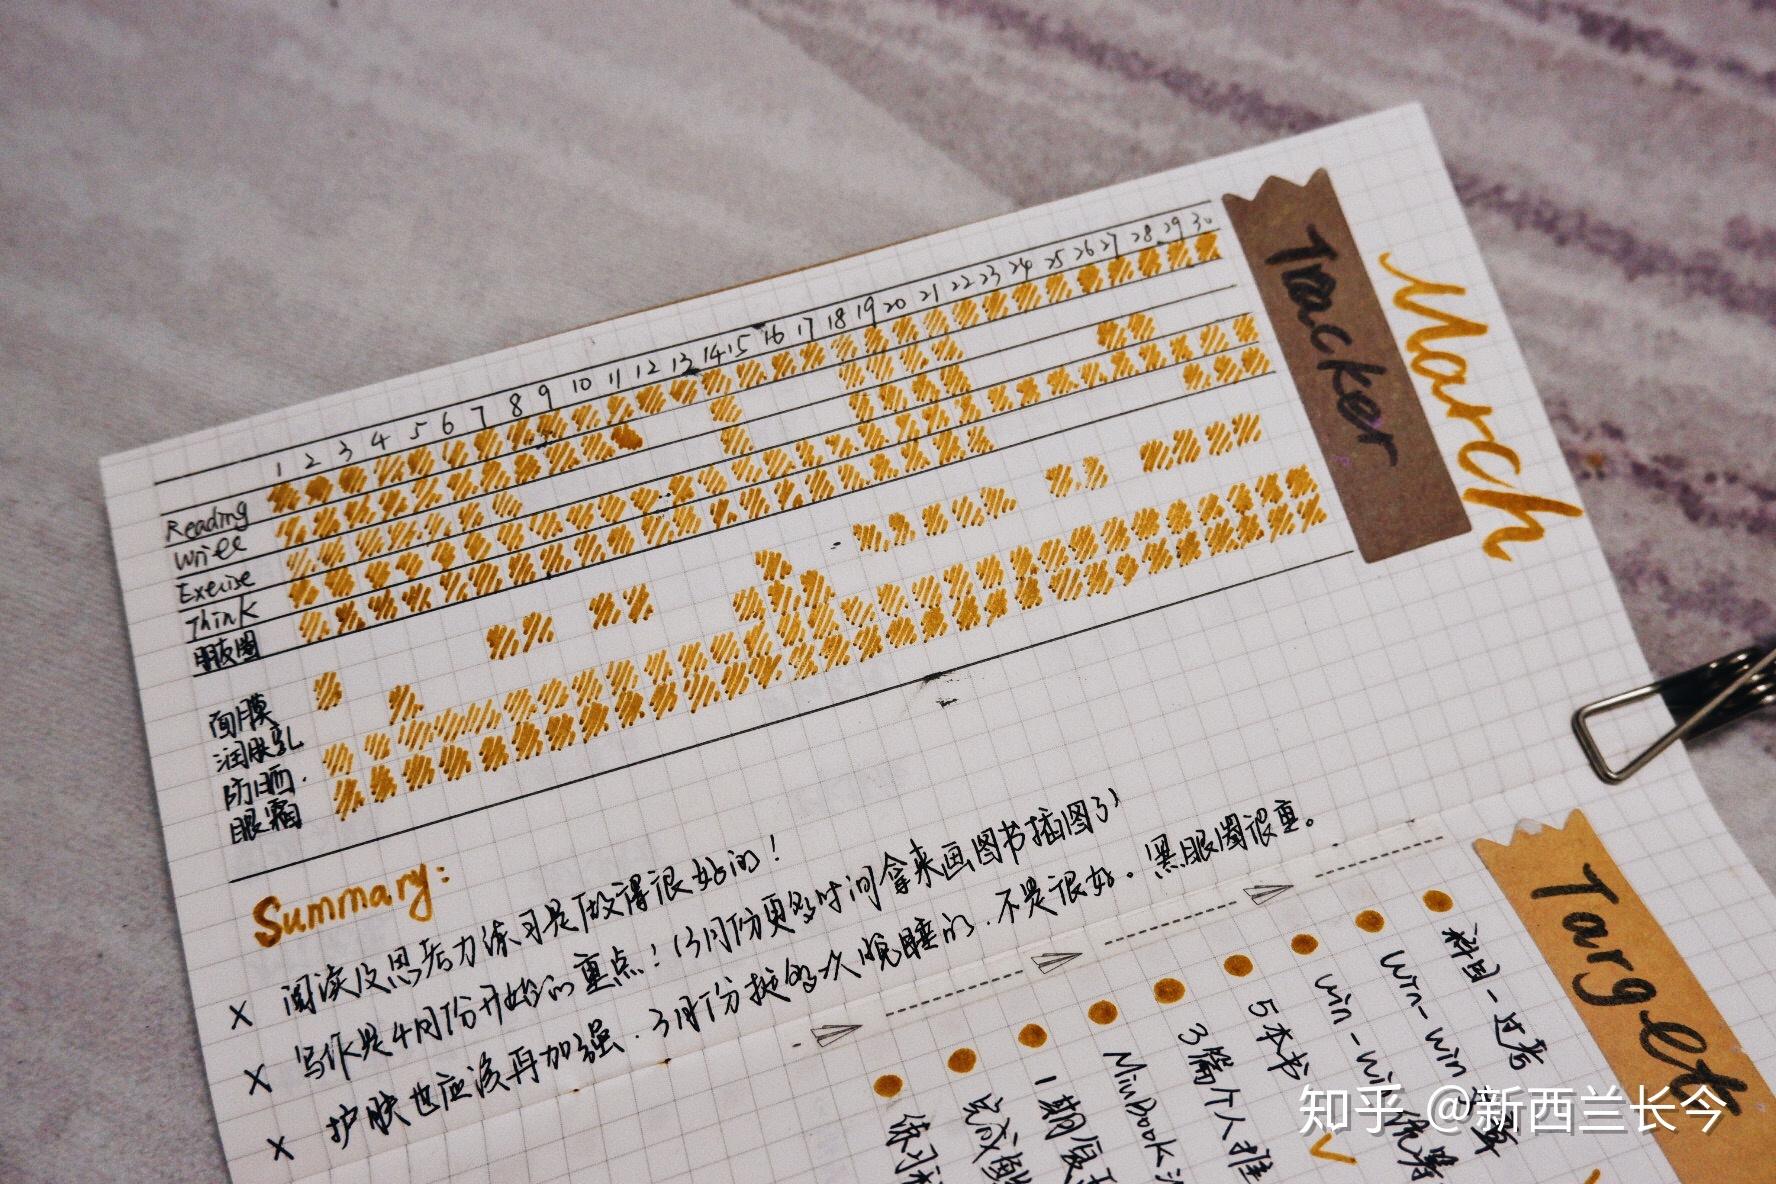 March
Tracker
1 2 3 4 5 6 7 8 9 10 11 12 13 14 15 16 17 18 19 20 21 22 23 24 25 26 27 28 29 30
Reading
Write
Exercise
Think
朋友圈
面膜
润肤乳
防晒.
眼霜
Summary:
× 阅读及思考力练习是做得很好的!
× 写作是4月份开始的重点!(3月份更多时间拿来画图书插图了)
× 护肤也应该再加强.3月份挺多次晚睡的.不是很好.黑眼圈很重。
Target
科目一过考
win-win
win-wi
5本书
3篇个人推
MiniBook
1期复
完成
练习
知乎 @新西兰长今